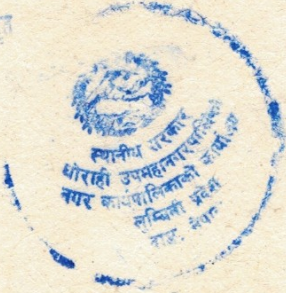 स्थानीय सरकार
घोराही उपमहानगरपालिका
नगर कार्यपालिकाको कार्यालय
लुम्बिनी प्रदेश
दाङ, नेपाल